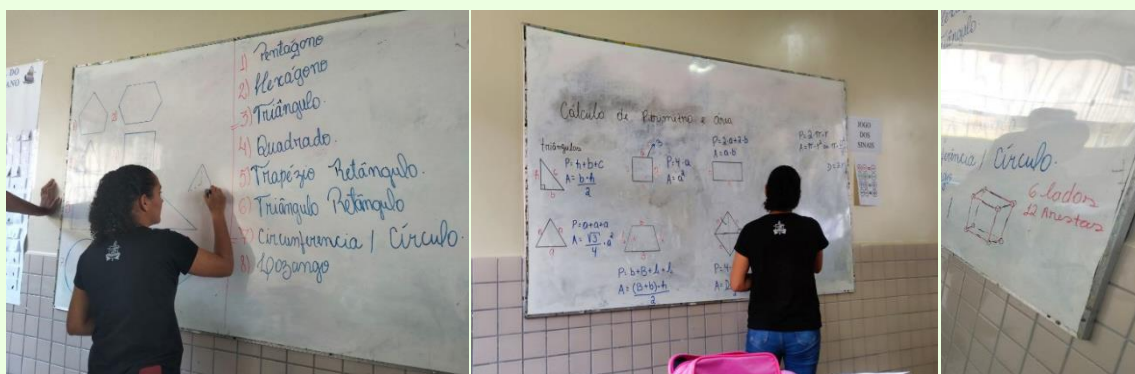 DO
ANO
1) Pentágono
2) Hexágono
3) Triângulo.
4) Quadrado.
5) Trapézio Retángulo.
6) Triângulo Retángulo
7) Circunferencia / Círculo.
8) Lozango
Cálculo de Perímetria e area
triângulos
P: h+b+c
A = b·h
2
P: 4·a
A = a²
P: 2·a+2·b
A = a·b
P: 2·π·r
JOGO
DOS
SINAIS
P = a+a+a
A = √3 · a²
4
P: b+B+l+l
A = (B+b)·h
2
Círculo.
6 lados
12 Arestas